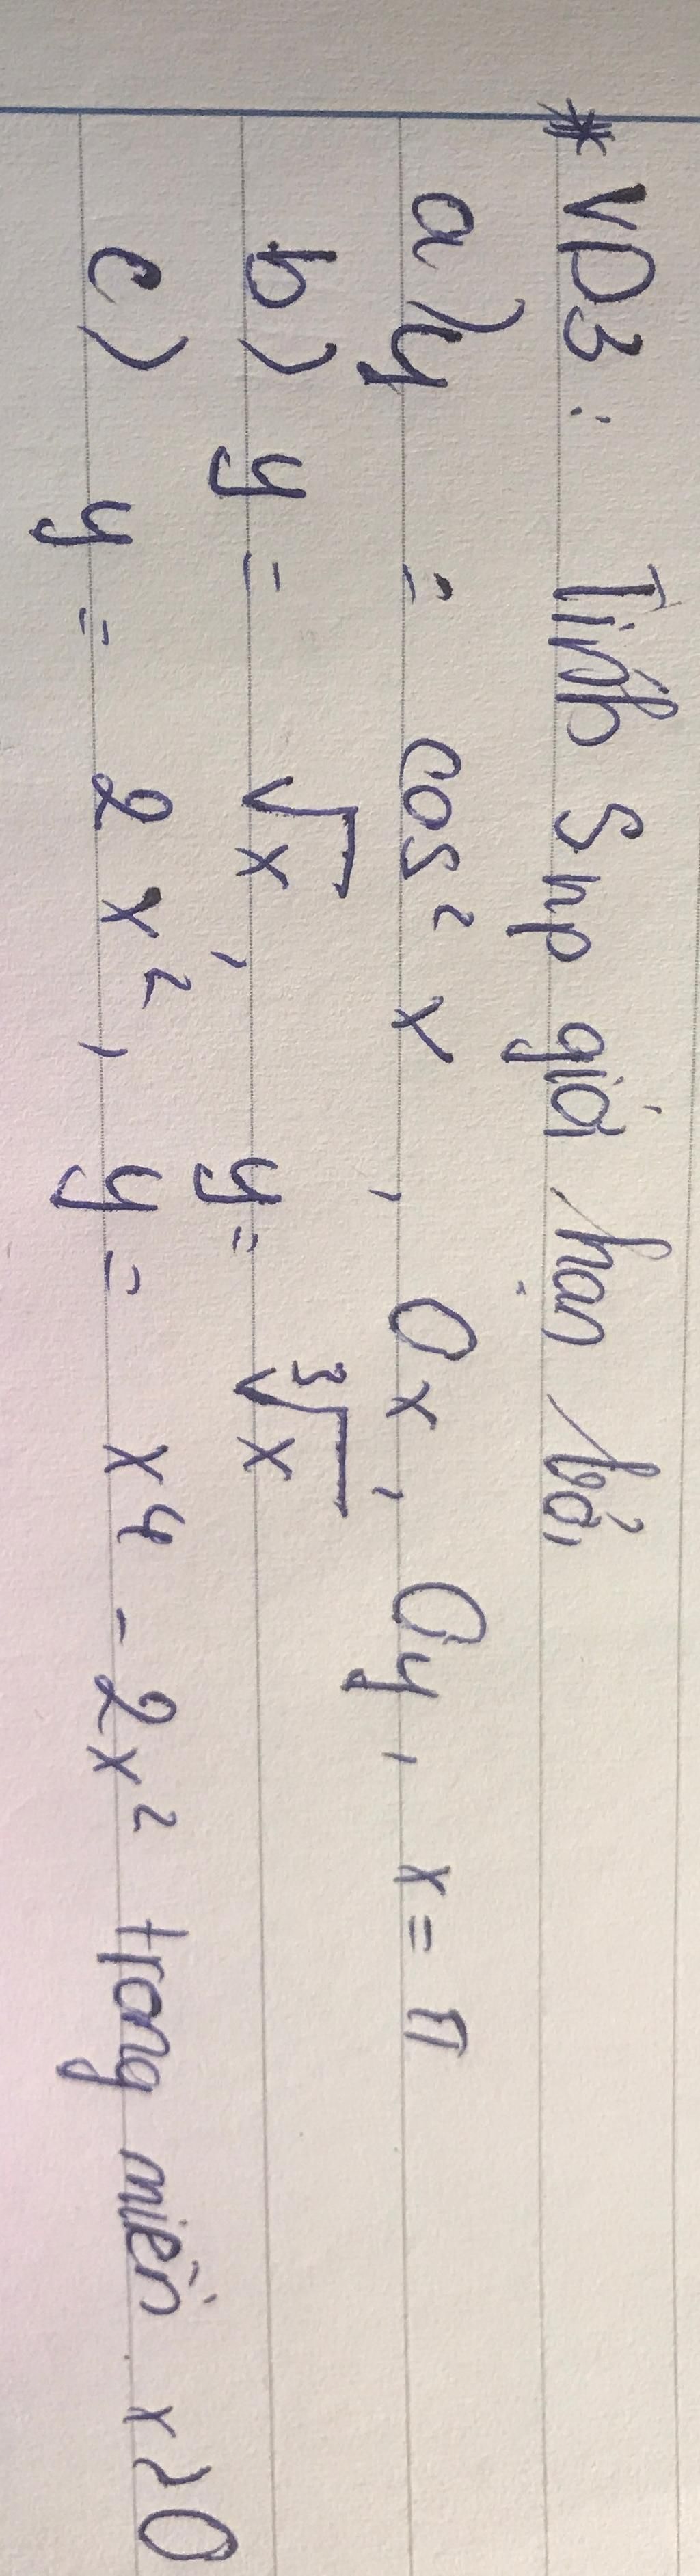 * VD3: Tính Shp giới hạn bởi
a) y = cos² x, Ox, Oy, x = π
b) y = √x, y = ∛x
c) y = 2x², y = x⁴ - 2x² trong miền x ≥ 0